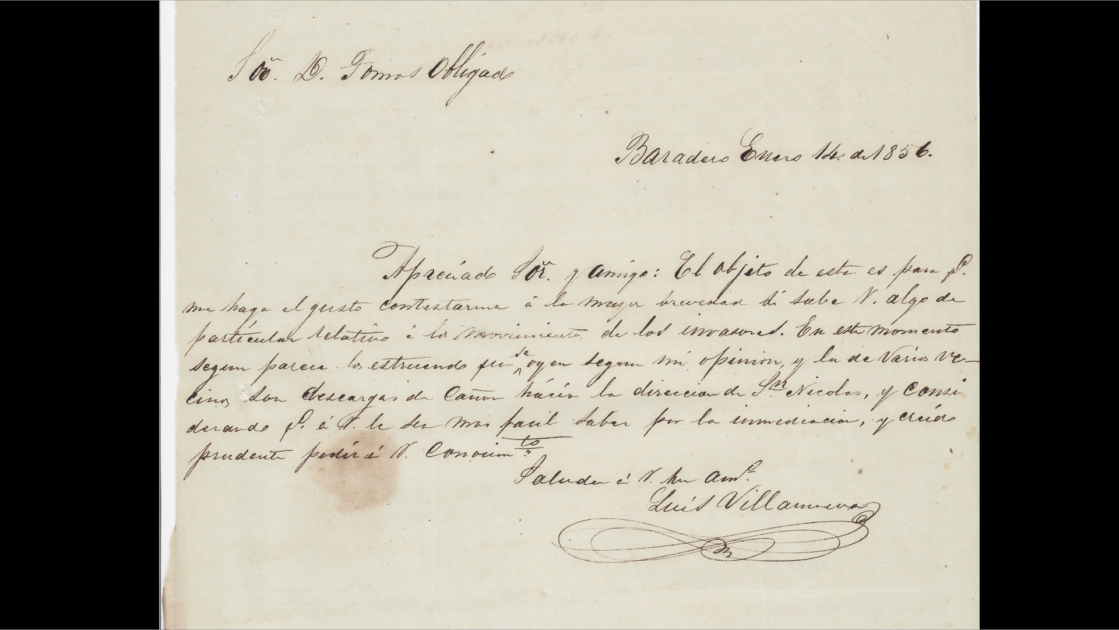 Sor. D. Tomas Obligado
Baradero Enero 14. de 1856.
Apreciado Sor. y amigo: El objeto de esta es para q.e
me haga el gusto contestarme á la mayor brevedad si sabe V. algo de
particular relativo á los movimientos de los invasores. En este momento
segun parece los estruendo que se oyen segun mi opinion, y la de varios ve-
cinos son descargas de Cañon hácia la direccion de Sn. Nicolas, y consi
derando q.e á V. le sea mas facil saber por la inmediacion, y creido
prudente pedir á V. Conocim.to
Saluda á V. su am.o
Luis Villanueva